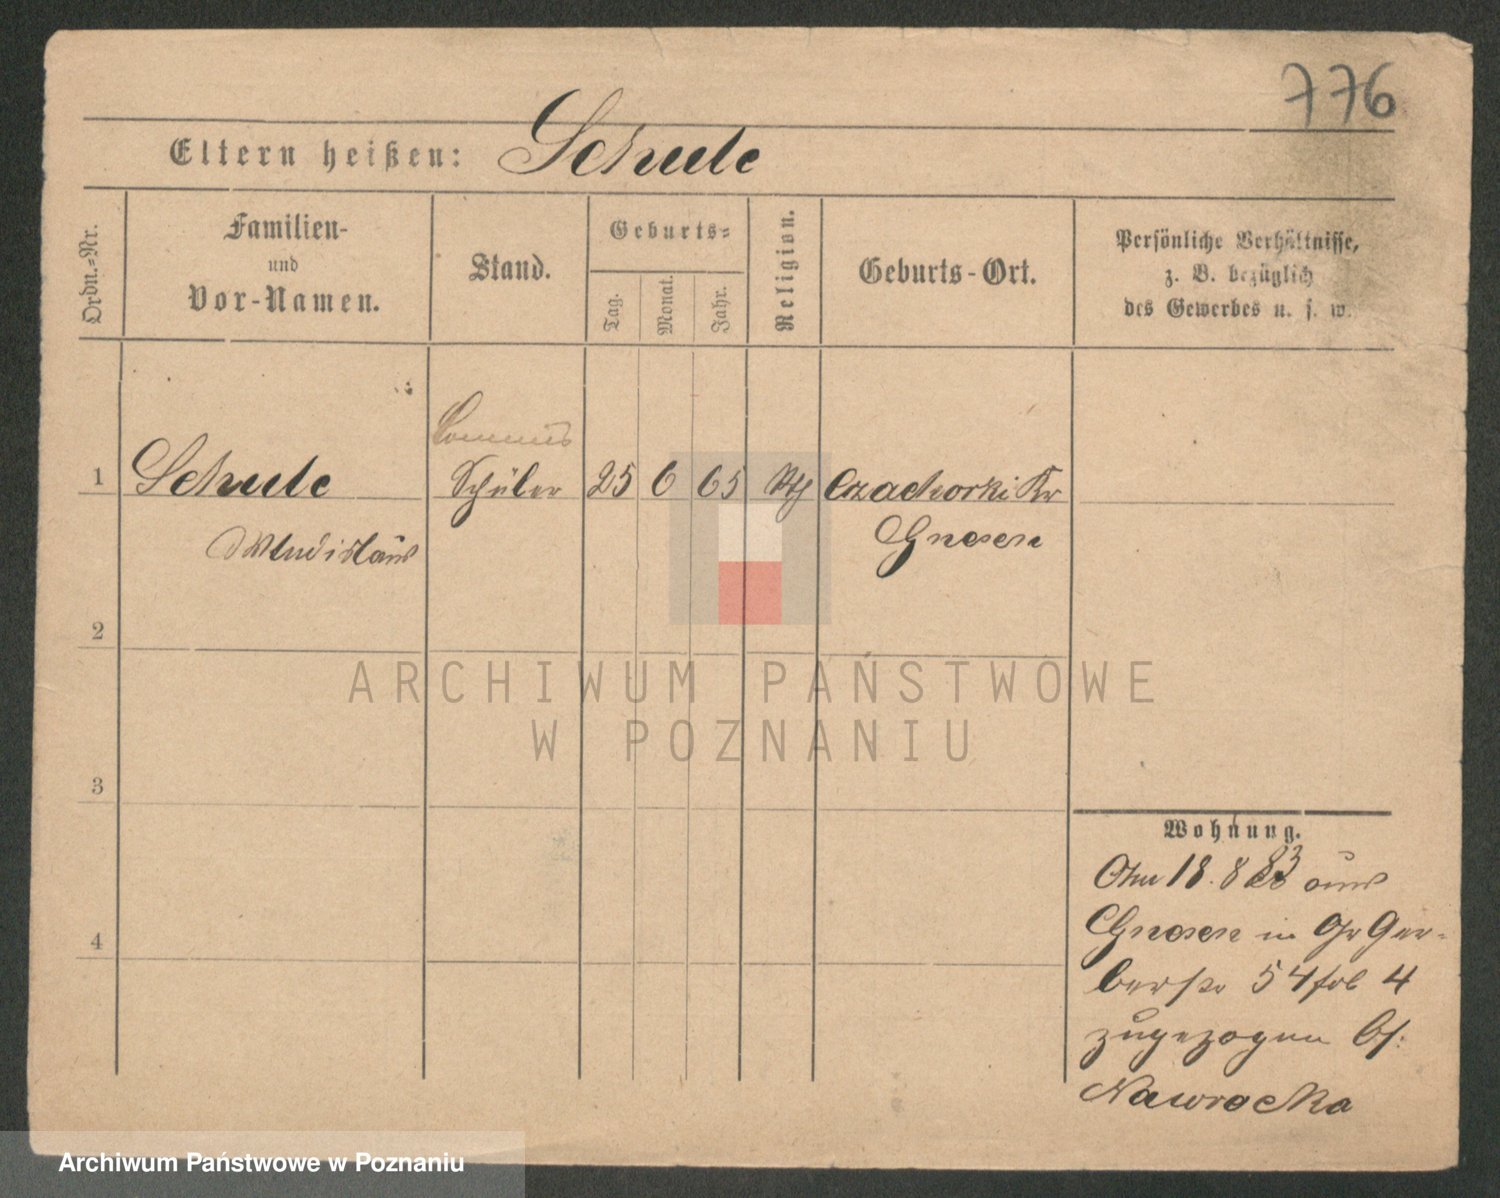 776
Eltern heißen: Schulc
Ordn.-Nr.
Familien-
und
Vor-Namen.
Stand.
Geburts-
Tag.
Monat.
Jahr.
Religion.
Geburts-Ort.
Persönliche Verhältnisse,
z. B. bezüglich
des Gewerbes u. s. w.
1 Schulc Schüler 25 6 65 kth Czachorki Kr
Wladislaus Gnesen
2
3
4
Wohnung.
18. 8 83 aus
Gnesen in Gr Ger-
berstr 54 4
zugezogen bei
Nawrocka
ARCHIWUM PAŃSTWOWE
W POZNANIU
Archiwum Państwowe w Poznaniu